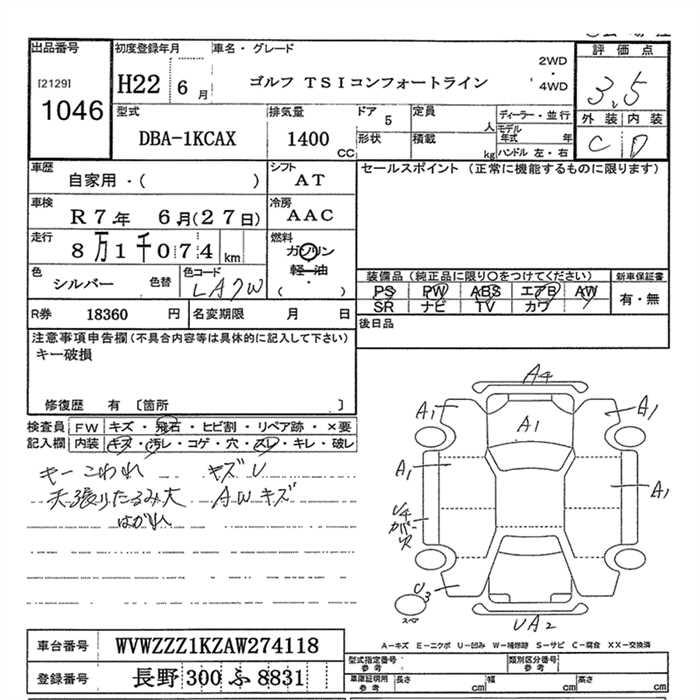 出品番号
[2129]
1046
初度登録年月
H22 6月
車名・グレード
ゴルフ TSIコンフォートライン
2WD
・
4WD
評価点
3.5
外装 内装
C D
型式
DBA-1KCAX
排気量
1400 CC
ドア
5
形状
定員
人
積載
kg
ディーラー・並行
モデル年式 年
ハンドル 左・右
車歴
自家用・( )
シフト
AT
セールスポイント (正常に機能するものに限ります)
車検
R7年 6月(27日)
冷房
AAC
走行
8万1千074 km
燃料
ガソリン
軽油
・
( )
色
シルバー 色替
色コード
LA7W
装備品 (純正品に限り○をつけてください)
PS PW ABS エアB AW
SR ナビ TV カワ
新車保証書
有・無
R券 18360 円
名変期限 月 日
後日品
注意事項申告欄 (不具合内容等は具体的に記入して下さい)
キー破損
修復歴 有 〔箇所 〕
検査員記入欄
FW キズ・飛石・ヒビ割・リペア跡・×要
内装 キズ・汚レ・コゲ・穴・スレ・キレ・破レ
キーこわれ キズU
天張りたるみ大 AWキズ
はがれ
A4
A1
A1
A1
A1
A1
U4
U3
UA2
スペア
A-キズ E-エクボ U-凹み W-補修跡 S-サビ C-腐食 XX-交換済
車台番号 WVWZZZ1KZAW274118
登録番号 長野 300 ふ 8831
型式指定番号
参考
類別区分番号
参考
車庫証明用
参考
長さ cm
幅 cm
高さ cm